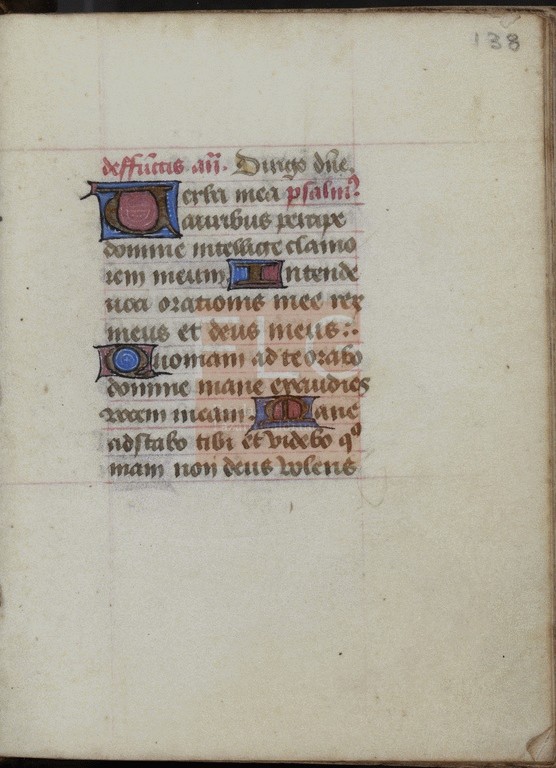 138
deffūctis añ. Dirige dñe.
Verba mea psalm⁹
auribus percipe
domine intellige clamo
rem meum. Intende
uoci orationis mee rex
meus et deus meus:.
Quoniam ad te orabo
domine mane exaudies
vocem meam. Mane
adstabo tibi et videbo qº
niam non deus volens
FLG